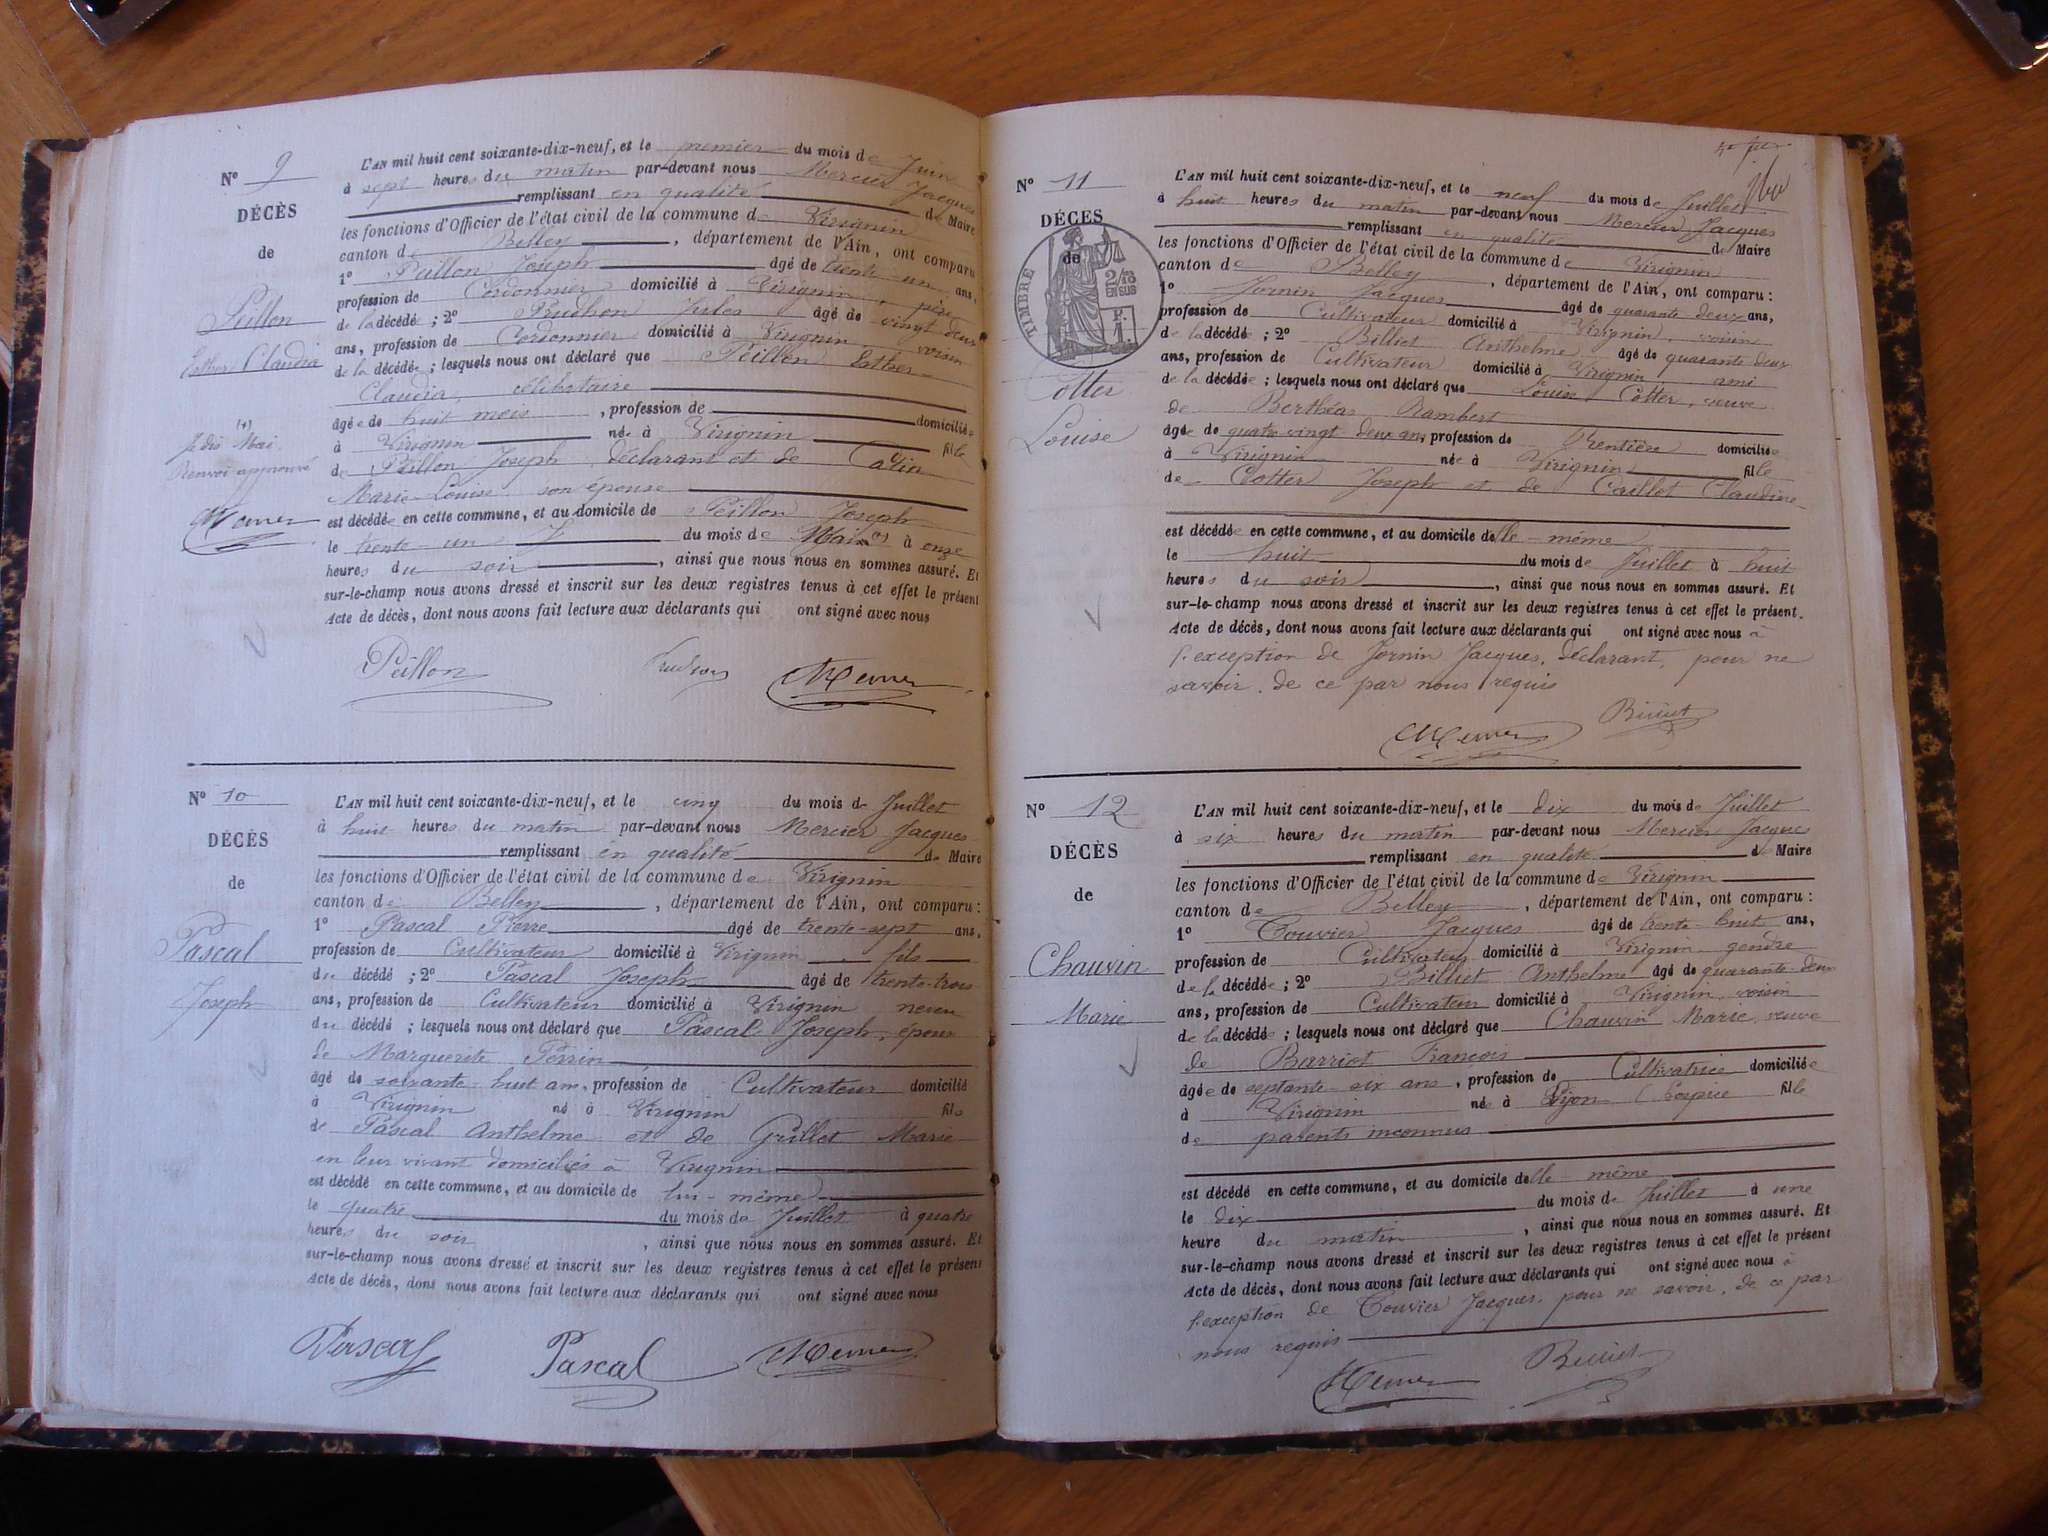 N° 9
DÉCÈS
de
Peillon
Esther Claudia
(+)
Je dis Mai.
Renvoi approuvé
Mercier
L'AN mil huit cent soixante-dix-neuf, et le premier du mois de Juin
à sept heures du matin par-devant nous Mercier Jacques
remplissant en qualité de Maire
les fonctions d'Officier de l'état civil de la commune de Virignin
canton de Belley, département de l'Ain, ont comparu
1° Peillon Joseph âgé de trente-un ans,
profession de Cordonnier domicilié à Virignin, père
de la décédée; 2° Prudhon Jules âgé de vingt deux
ans, profession de Cordonnier domicilié à Virignin, voisin
de la décédée; lesquels nous ont déclaré que Peillon Esther
Claudia, célibataire
âgée de huit mois, profession de domiciliée
à Virignin née à Virignin fille
de Peillon Joseph, déclarant et de
Marie Louise son épouse
est décédée en cette commune, et au domicile de Peillon Joseph
le trente-un du mois de Mai à onze
heures du soir, ainsi que nous nous en sommes assuré. Et
sur-le-champ nous avons dressé et inscrit sur les deux registres tenus à cet effet le présent
Acte de décès, dont nous avons fait lecture aux déclarants qui ont signé avec nous
Peillon Prudhon Mercier
N° 10
DÉCÈS
de
Pascal
Joseph
L'AN mil huit cent soixante-dix-neuf, et le cinq du mois de Juillet
à huit heures du matin par-devant nous Mercier Jacques
remplissant en qualité de Maire
les fonctions d'Officier de l'état civil de la commune de Virignin
canton de Belley, département de l'Ain, ont comparu :
1° Pascal Pierre âgé de trente-sept ans,
profession de Cultivateur domicilié à Virignin, fils
du décédé; 2° Pascal Joseph âgé de trente-trois
ans, profession de Cultivateur domicilié à Virignin neveu
du décédé; lesquels nous ont déclaré que Pascal Joseph, époux
de Marguerite Perrin
âgé de soixante-huit ans, profession de Cultivateur domicilié
à Virignin né à Virignin fils
de Pascal Anthelme et de Grillet Marie
en leur vivant domiciliés à Virignin
est décédé en cette commune, et au domicile de lui-même
le quatre du mois de Juillet à quatre
heures du soir, ainsi que nous nous en sommes assuré. Et
sur-le-champ nous avons dressé et inscrit sur les deux registres tenus à cet effet le présent
Acte de décès, dont nous avons fait lecture aux déclarants qui ont signé avec nous
Pascal Pascal Mercier
N° 11
DÉCÈS
de
TIMBRE
2/10
EN SUS
Cotter
Louise
L'AN mil huit cent soixante-dix-neuf, et le neuf du mois de Juillet
à huit heures du matin par-devant nous Mercier Jacques
remplissant en qualité de Maire
les fonctions d'Officier de l'état civil de la commune de Virignin
canton de Belley, département de l'Ain, ont comparu :
1° Jornin Jacques âgé de quarante deux ans,
profession de Cultivateur domicilié à Virignin, voisin
de la décédée; 2° Billiet Anthelme âgé de quarante deux
ans, profession de Cultivateur domicilié à Virignin ami
de la décédée; lesquels nous ont déclaré que Louise Cotter, veuve
de Berthéas Rambert
âgée de quatre vingt deux ans, profession de Rentière domiciliée
à Virignin née à Virignin fille
de Cotter Joseph et de Caillet Claudine
est décédée en cette commune, et au domicile d'elle-même
le huit du mois de Juillet à huit
heures du soir, ainsi que nous nous en sommes assuré. Et
sur-le-champ nous avons dressé et inscrit sur les deux registres tenus à cet effet le présent.
Acte de décès, dont nous avons fait lecture aux déclarants qui ont signé avec nous à
l'exception de Jornin Jacques, déclarant, pour ne
savoir, de ce par nous requis
Mercier Billiet
N° 12
DÉCÈS
de
Chauvin
Marie
L'AN mil huit cent soixante-dix-neuf, et le dix du mois de Juillet
à six heures du matin par-devant nous Mercier Jacques
remplissant en qualité de Maire
les fonctions d'Officier de l'état civil de la commune de Virignin
canton de Belley, département de l'Ain, ont comparu :
1° Touvier Jacques âgé de trente-huit ans,
profession de Cultivateur domicilié à Virignin gendre
de la décédée; 2° Billiet Anthelme âgé de quarante-deux
ans, profession de Cultivateur domicilié à Virignin, voisin
de la décédée; lesquels nous ont déclaré que Chauvin Marie, veuve
de Barriot François
âgée de septante-six ans, profession de Cultivatrice domiciliée
à Virignin née à Dijon (hospice fille
de parents inconnus
est décédé en cette commune, et au domicile d'elle-même
le dix du mois de Juillet à une
heure du matin, ainsi que nous nous en sommes assuré. Et
sur-le-champ nous avons dressé et inscrit sur les deux registres tenus à cet effet le présent
Acte de décès, dont nous avons fait lecture aux déclarants qui ont signé avec nous à
l'exception de Touvier Jacques, pour ne savoir, de ce par
nous requis
Mercier Billiet